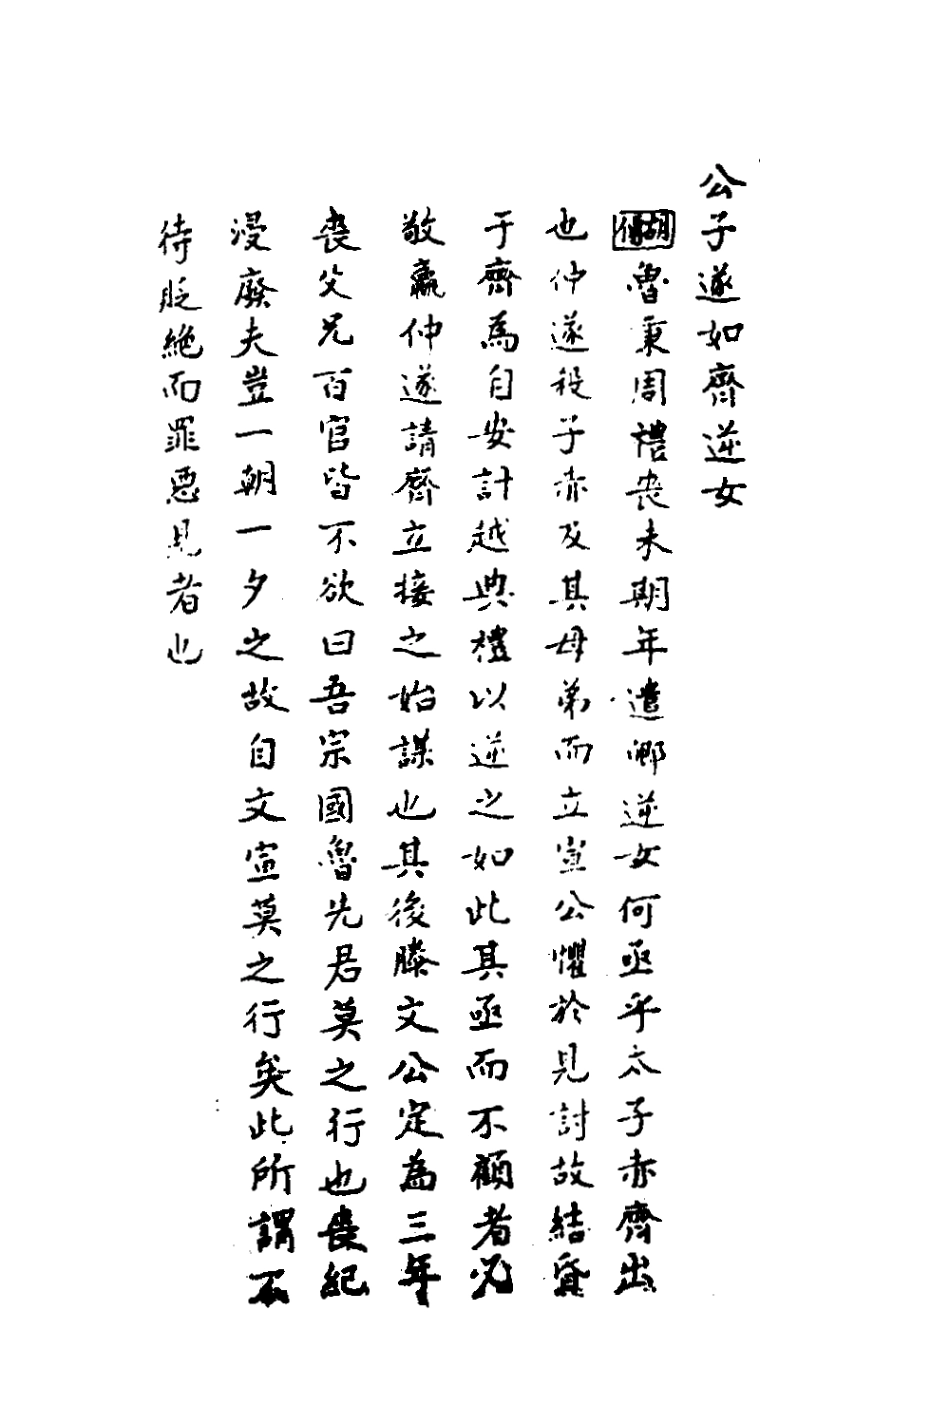 公子遂如齊逆女
胡傳魯秉周禮喪未期年遣卿逆女何亟乎太子赤齊出
也仲遂殺子赤及其母弟而立宣公懼於見討故結昏
于齊為自安計越典禮以逆之如此其亟而不顧者必
敬嬴仲遂請齊立接之始謀也其後滕文公定為三年
喪父兄百官皆不欲曰吾宗國魯先君莫之行也喪紀
浸廢夫豈一朝一夕之故自文宣莫之行矣此所謂不
待貶絶而罪惡見者也